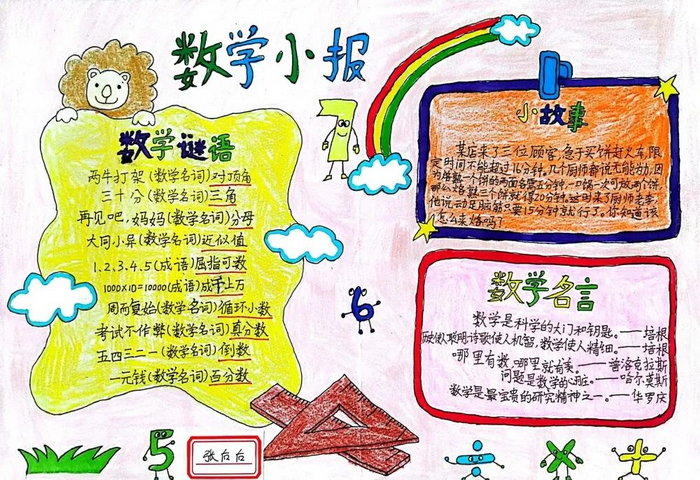 数学小报
数学谜语
两牛打架(数学名词)对顶角
三十分(数学名词)三角
再见吧,妈妈(数学名词)分母
大同小异(数学名词)近似值
1.2.3.4.5(成语)屈指可数
1000×10=10000(成语)成千上万
周而复始(数学名词)循环小数
考试不作弊(数学名词)真分数
五四三二一(数学名词)倒数
一元钱(数学名词)百分数
7
小故事
某店来了三位顾客,急于买饼赶火车,限
定时间不能超过16分钟,几个厨师都说无能为力,因
为烙熟一个饼的两面各要五分钟,一口锅一次可放两个饼
那么烙熟三个饼就得20分钟,这时来了厨师老李,
他说动足脑筋只要15分钟就行了,你知道该
怎么来烙吗?
6
数学名言
数学是科学的大门和钥匙。——培根
使人聪明,诗歌使人机智,数学使人精细。——培根
哪里有数,哪里就有美。——普洛克拉斯
问题是数学的心脏。——哈尔莫斯
数学是最宝贵的研究精神之一。——华罗庚
5
张后后
÷
×
+